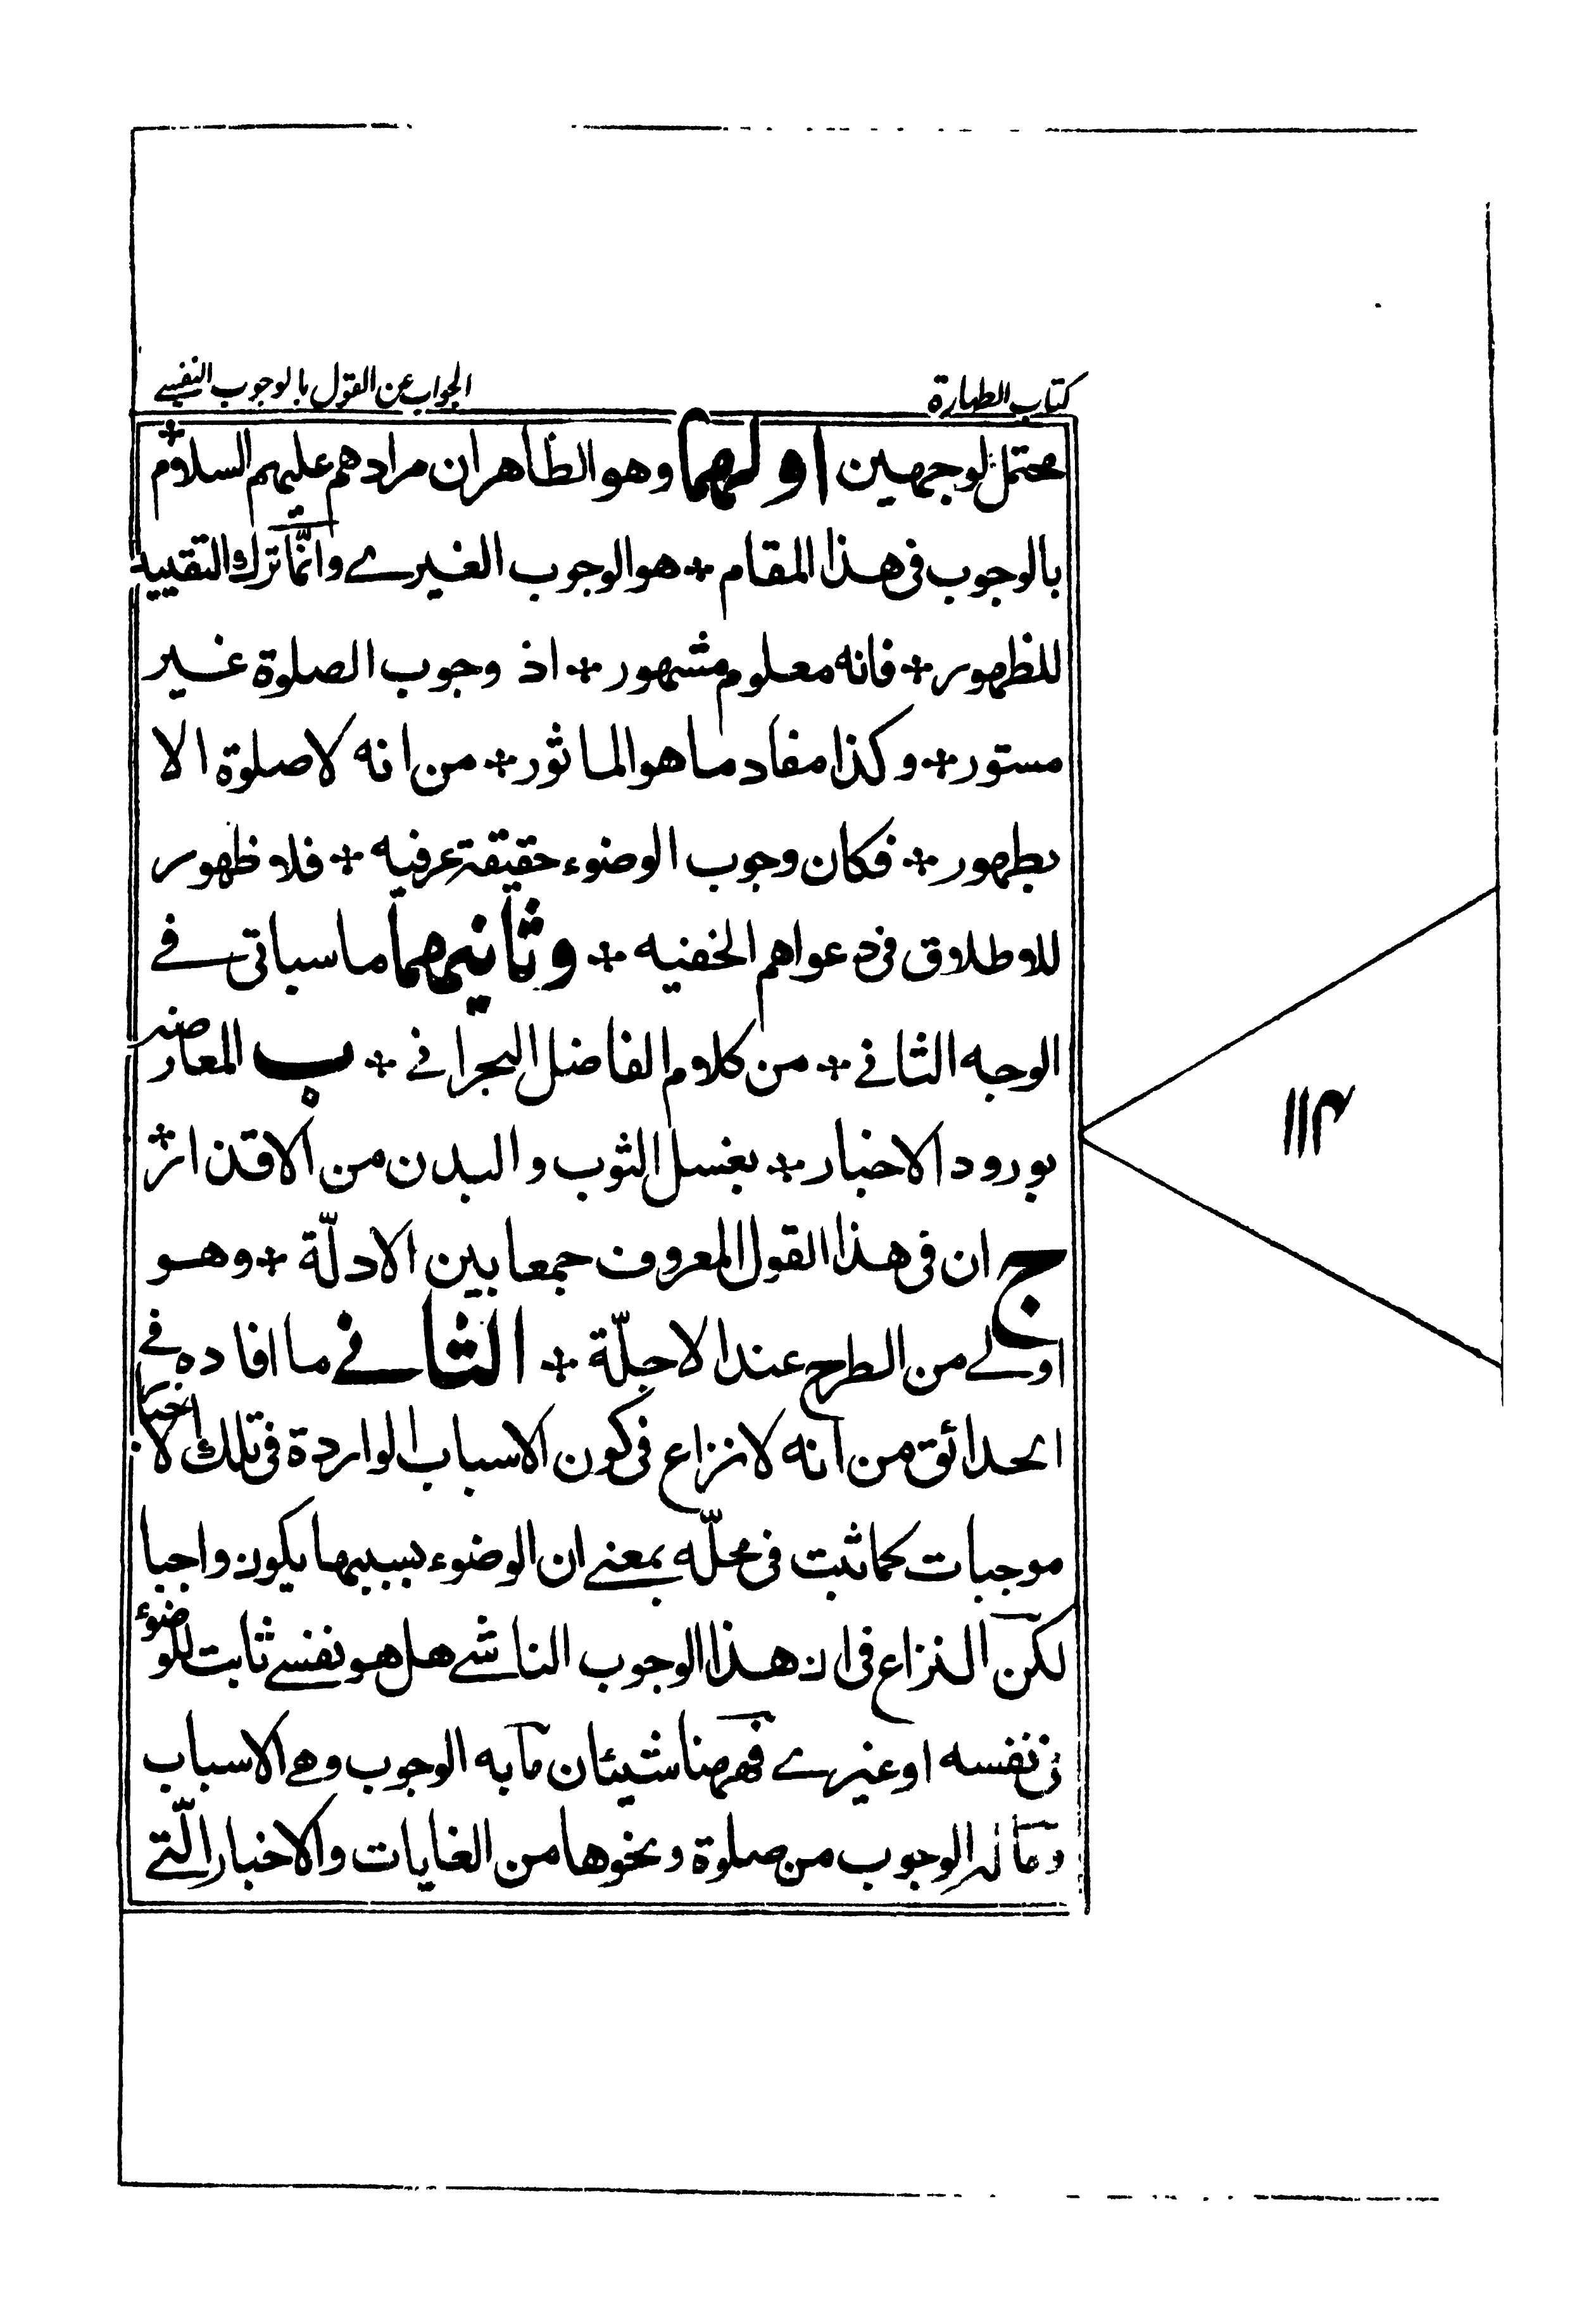 كتاب الطهارة
الجواب عن القول بالوجوب النفسے
محتمل لوجهين اولهما وهو الظاهر ان مرادهم عليهم السلام +
بالوجوب فى هذا المقام + هو الوجوب الغيرے وانّما ترك التقييد
للظهور + فانه معلوم مشهور + اذ وجوب الصلوة غير
مستور + وكذا مفاد ما هو الماثور + من انه لا صلوة الا
بطهور + فكان وجوب الوضوء حقيقة عرفيه + فلا ظهور
للاطلاق فى دعواهم الخفيه + وثانيهما ما سياتى فے
الوجه الثانے + من كلام الفاضل البحرانے + ب المعارضه
بورود الاخبار + بغسل الثوب والبدن من الاقذار +
ج ان فى هذا القول المعروف جمعا بين الادلّة + وهو
اولے من الطرح عند الاجلّة + الثانے ما افاده فے
الحدائق من انه لا نزاع فى كون الاسباب الواردة فى تلك الاخبار
موجبات كما ثبت فى محلّه بمعنے ان الوضوء بسببها يكون واجبا
لكن النزاع فى ان هذا الوجوب الناشے هل هو نفسے ثابت للوضوء
فى نفسه او غيرے فههنا شيئان ما به الوجوب وهے الاسباب
وما له الوجوب من صلوة ونحوها من الغايات والاخبار الّتے
١١٤